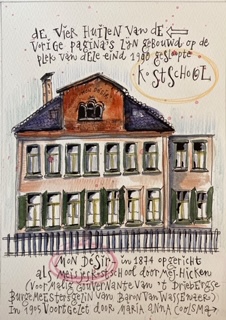 de vier huizen van de ←
vorige pagina's zijn gebouwd op de
plek van deze eind 1980 gesloopte
KOSTSCHOOL
MON DESIR - in 1874 opgericht
als meisjeskostschool door Mej. Hicken
(voormalig gouvernante van 't Driebergse
burgemeestersgezin van Baron van Wassenaer)
In 1905 voortgezet door Maria Anna Coolsma →